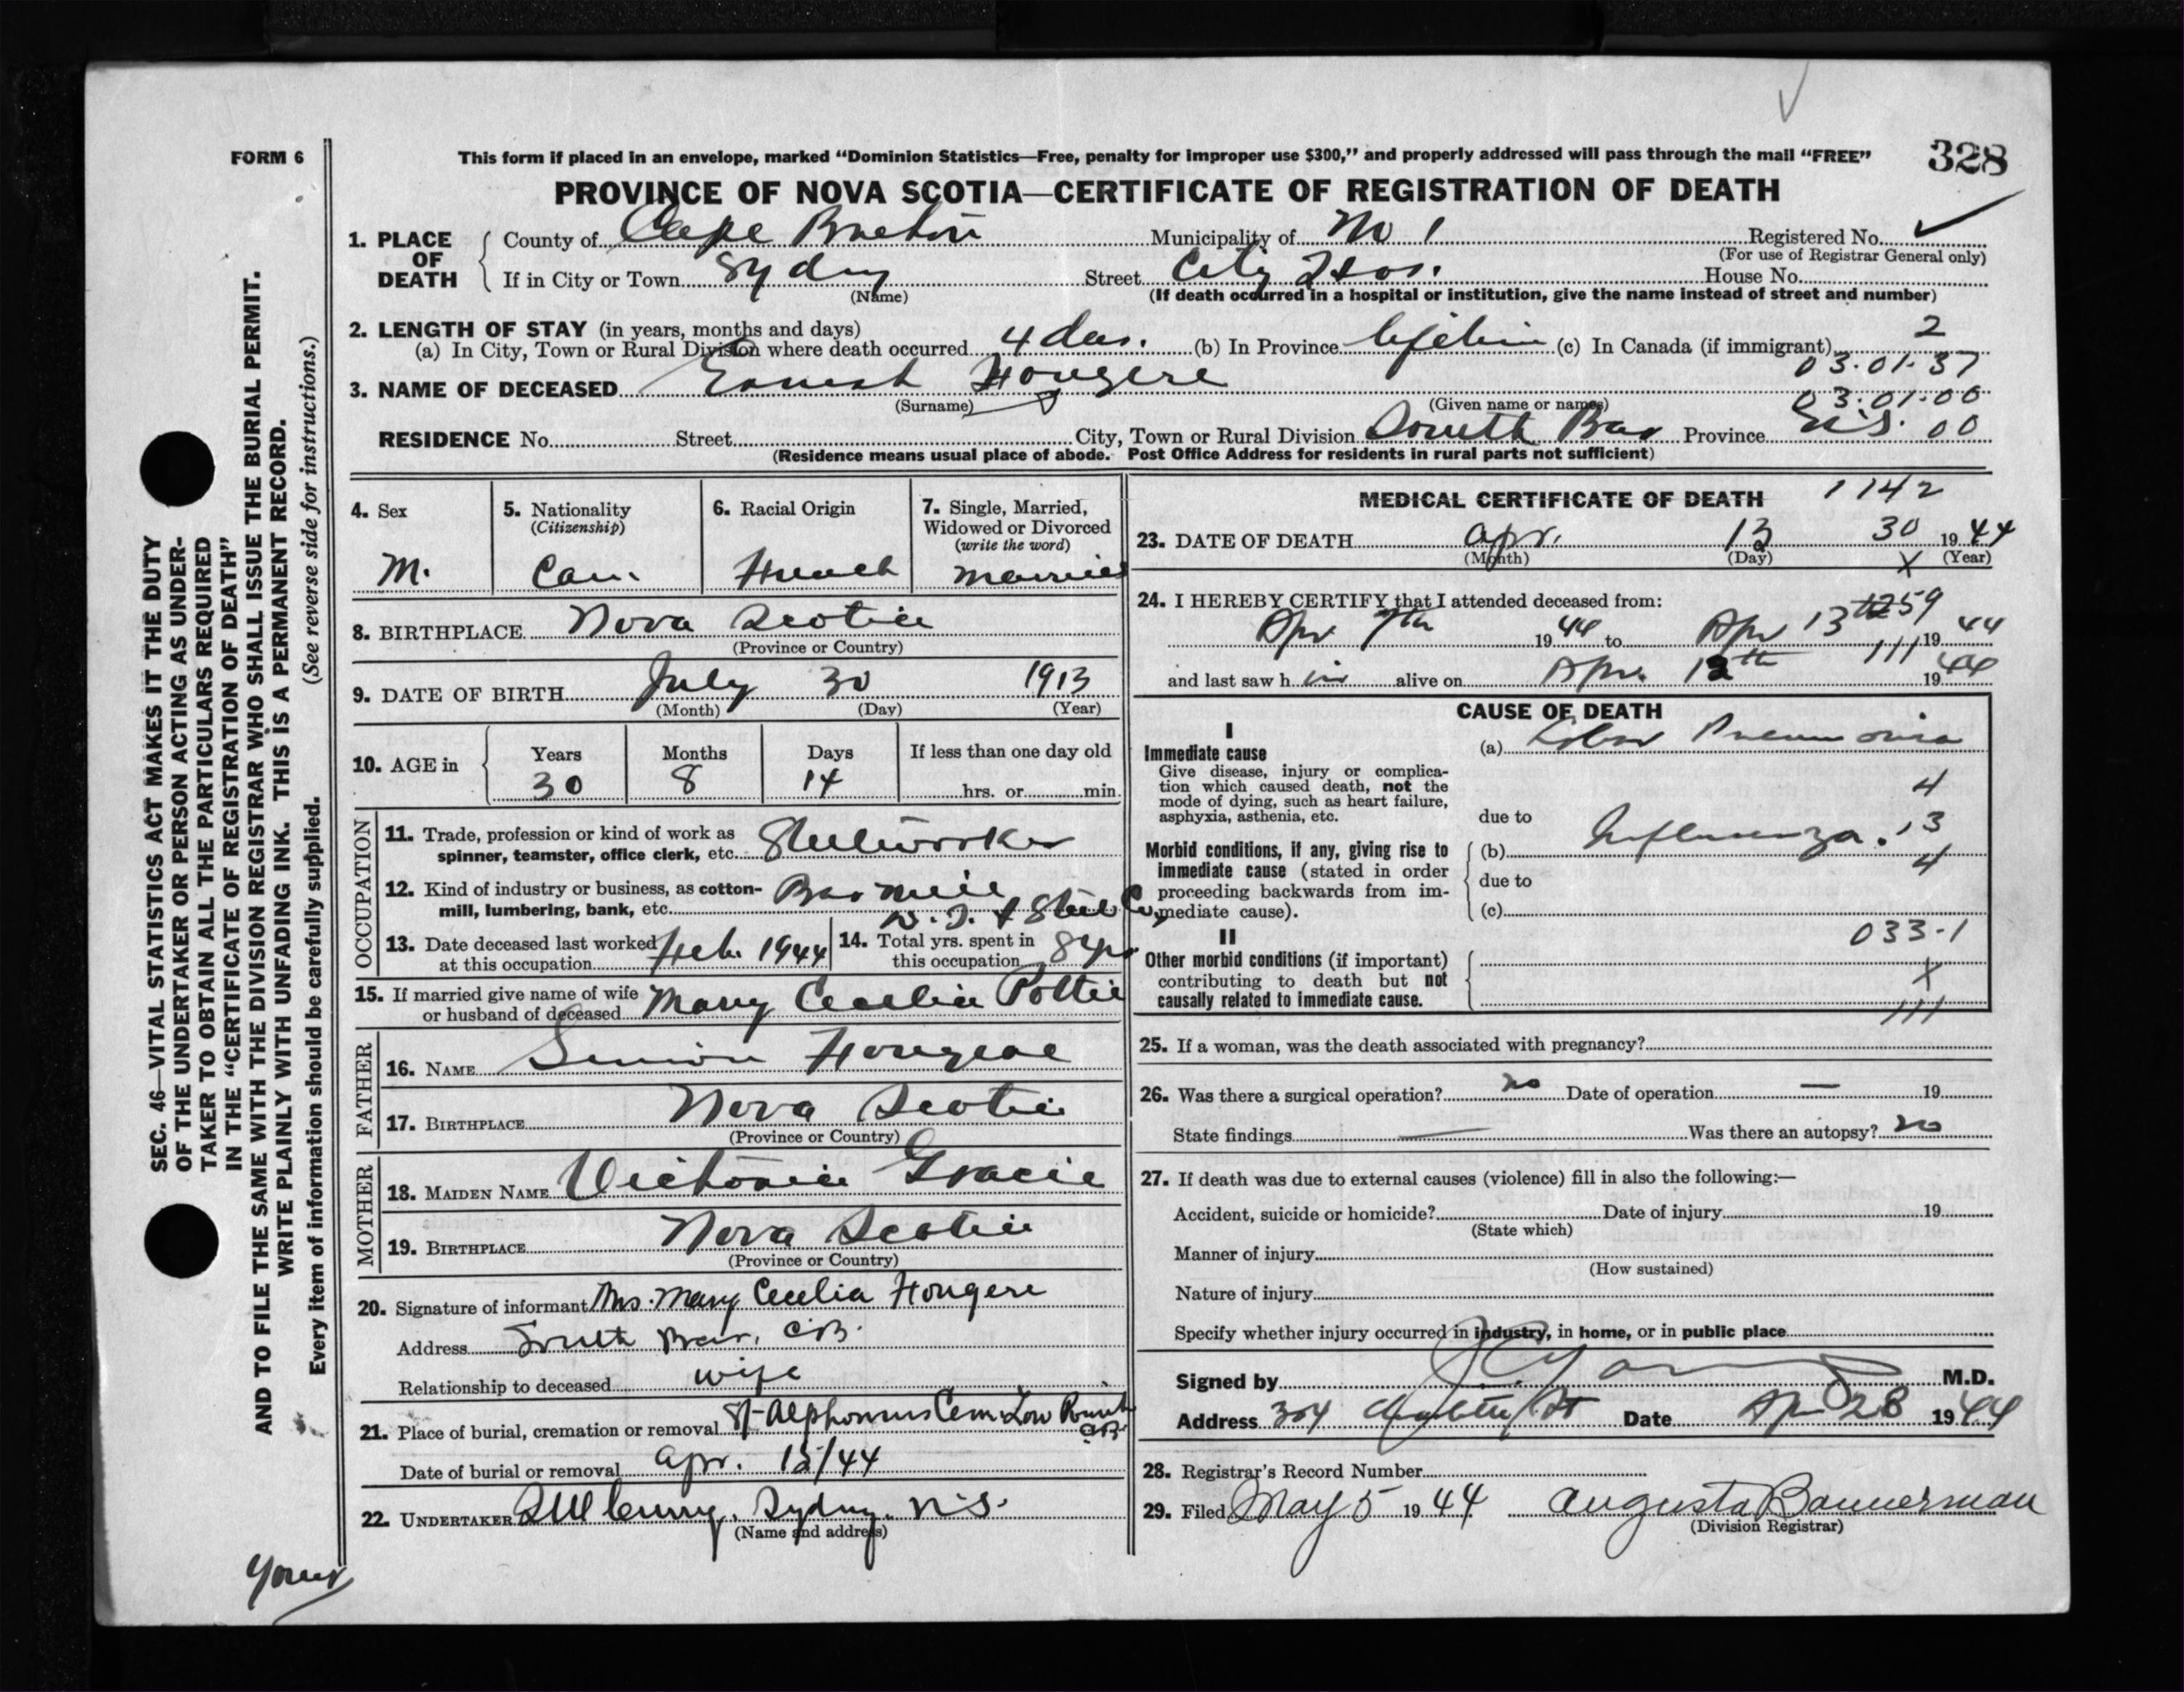 FORM 6
This form if placed in an envelope, marked “Dominion Statistics—Free, penalty for improper use $300,” and properly addressed will pass through the mail “FREE”
328
PROVINCE OF NOVA SCOTIA—CERTIFICATE OF REGISTRATION OF DEATH
1. PLACE OF DEATH
County of Cape Breton Municipality of No 1 Registered No.
(For use of Registrar General only)
If in City or Town Sydney Street City Hos. House No.
(Name) (If death occurred in a hospital or institution, give the name instead of street and number)
2. LENGTH OF STAY (in years, months and days) 2
(a) In City, Town or Rural Division where death occurred 4 das. (b) In Province Lifetime (c) In Canada (if immigrant)
03.01.37
3. NAME OF DECEASED Ernest Fougere
(Surname) (Given name or names) 03.01.00
RESIDENCE No. Street City, Town or Rural Division South Bar Province N.S. 00
(Residence means usual place of abode. Post Office Address for residents in rural parts not sufficient)
4. Sex M.
5. Nationality (Citizenship) Can.
6. Racial Origin French
7. Single, Married, Widowed or Divorced (write the word) Married
8. BIRTHPLACE Nova Scotia
(Province or Country)
9. DATE OF BIRTH July 30 1913
(Month) (Day) (Year)
10. AGE in Years 30 Months 8 Days 14 If less than one day old
hrs. or min.
OCCUPATION
11. Trade, profession or kind of work as
spinner, teamster, office clerk, etc. Steelworker
12. Kind of industry or business, as cotton-
mill, lumbering, bank, etc. Bar Mill
D. I. & Steel Co,
13. Date deceased last worked
at this occupation Feb. 1944
14. Total yrs. spent in
this occupation 8 yrs
15. If married give name of wife
or husband of deceased Mary Cecelia Pottie
FATHER
16. NAME Simon Fougere
17. BIRTHPLACE Nova Scotia
(Province or Country)
MOTHER
18. MAIDEN NAME Victoria Gracie
19. BIRTHPLACE Nova Scotia
(Province or Country)
20. Signature of informant Mrs. Mary Cecelia Fougere
Address South Bar, C.B.
Relationship to deceased wife
21. Place of burial, cremation or removal St Alphonsus Cem. Low Point
C.B.
Date of burial or removal Apr. 15/44
22. UNDERTAKER Sydney. N.S.
(Name and address)
MEDICAL CERTIFICATE OF DEATH 1142
23. DATE OF DEATH Apr. 13 30 1944
(Month) (Day) X (Year)
24. I HEREBY CERTIFY that I attended deceased from:
259
Apr 7th 1944 to Apr 13th 1944
111
and last saw h im alive on Apr. 12th 1944
CAUSE OF DEATH
I
Immediate cause (a) Lobar Pneumonia
Give disease, injury or complica-
tion which caused death, not the
mode of dying, such as heart failure,
asphyxia, asthenia, etc.
4
due to
Morbid conditions, if any, giving rise to
immediate cause (stated in order
proceeding backwards from im-
mediate cause).
(b) Influenza. 13
4
due to
(c)
033-1
II
Other morbid conditions (if important)
contributing to death but not
causally related to immediate cause.
X
111
25. If a woman, was the death associated with pregnancy?
26. Was there a surgical operation? no Date of operation — 19
State findings — Was there an autopsy? no
27. If death was due to external causes (violence) fill in also the following:—
Accident, suicide or homicide? Date of injury 19
(State which)
Manner of injury
(How sustained)
Nature of injury
Specify whether injury occurred in industry, in home, or in public place
Signed by M.D.
Address 304 Date Apr 28 1944
28. Registrar's Record Number
29. Filed May 5 1944 Augusta Bannerman
(Division Registrar)
SEC. 46—VITAL STATISTICS ACT MAKES IT THE DUTY
OF THE UNDERTAKER OR PERSON ACTING AS UNDER-
TAKER TO OBTAIN ALL THE PARTICULARS REQUIRED
IN THE “CERTIFICATE OF REGISTRATION OF DEATH”
AND TO FILE THE SAME WITH THE DIVISION REGISTRAR WHO SHALL ISSUE THE BURIAL PERMIT.
WRITE PLAINLY WITH UNFADING INK. THIS IS A PERMANENT RECORD.
Every item of information should be carefully supplied. (See reverse side for instructions.)